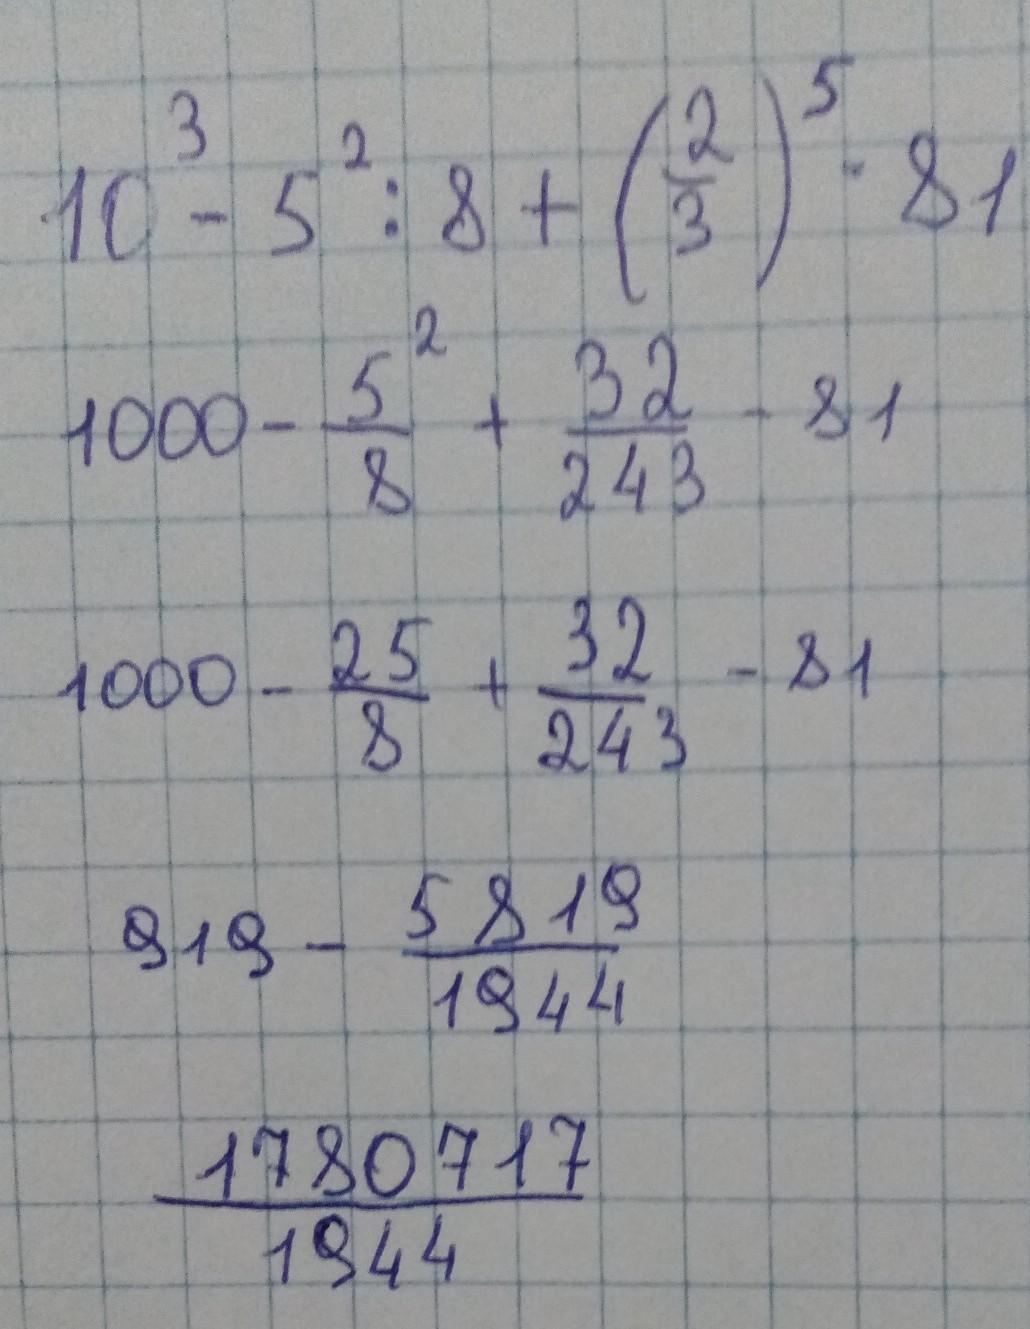 10³ - 5² : 8 + (2/3)⁵ · 81
1000 - 5²/8 + 32/243 - 81
1000 - 25/8 + 32/243 - 81
919 - 5819/1944
1780717/1944